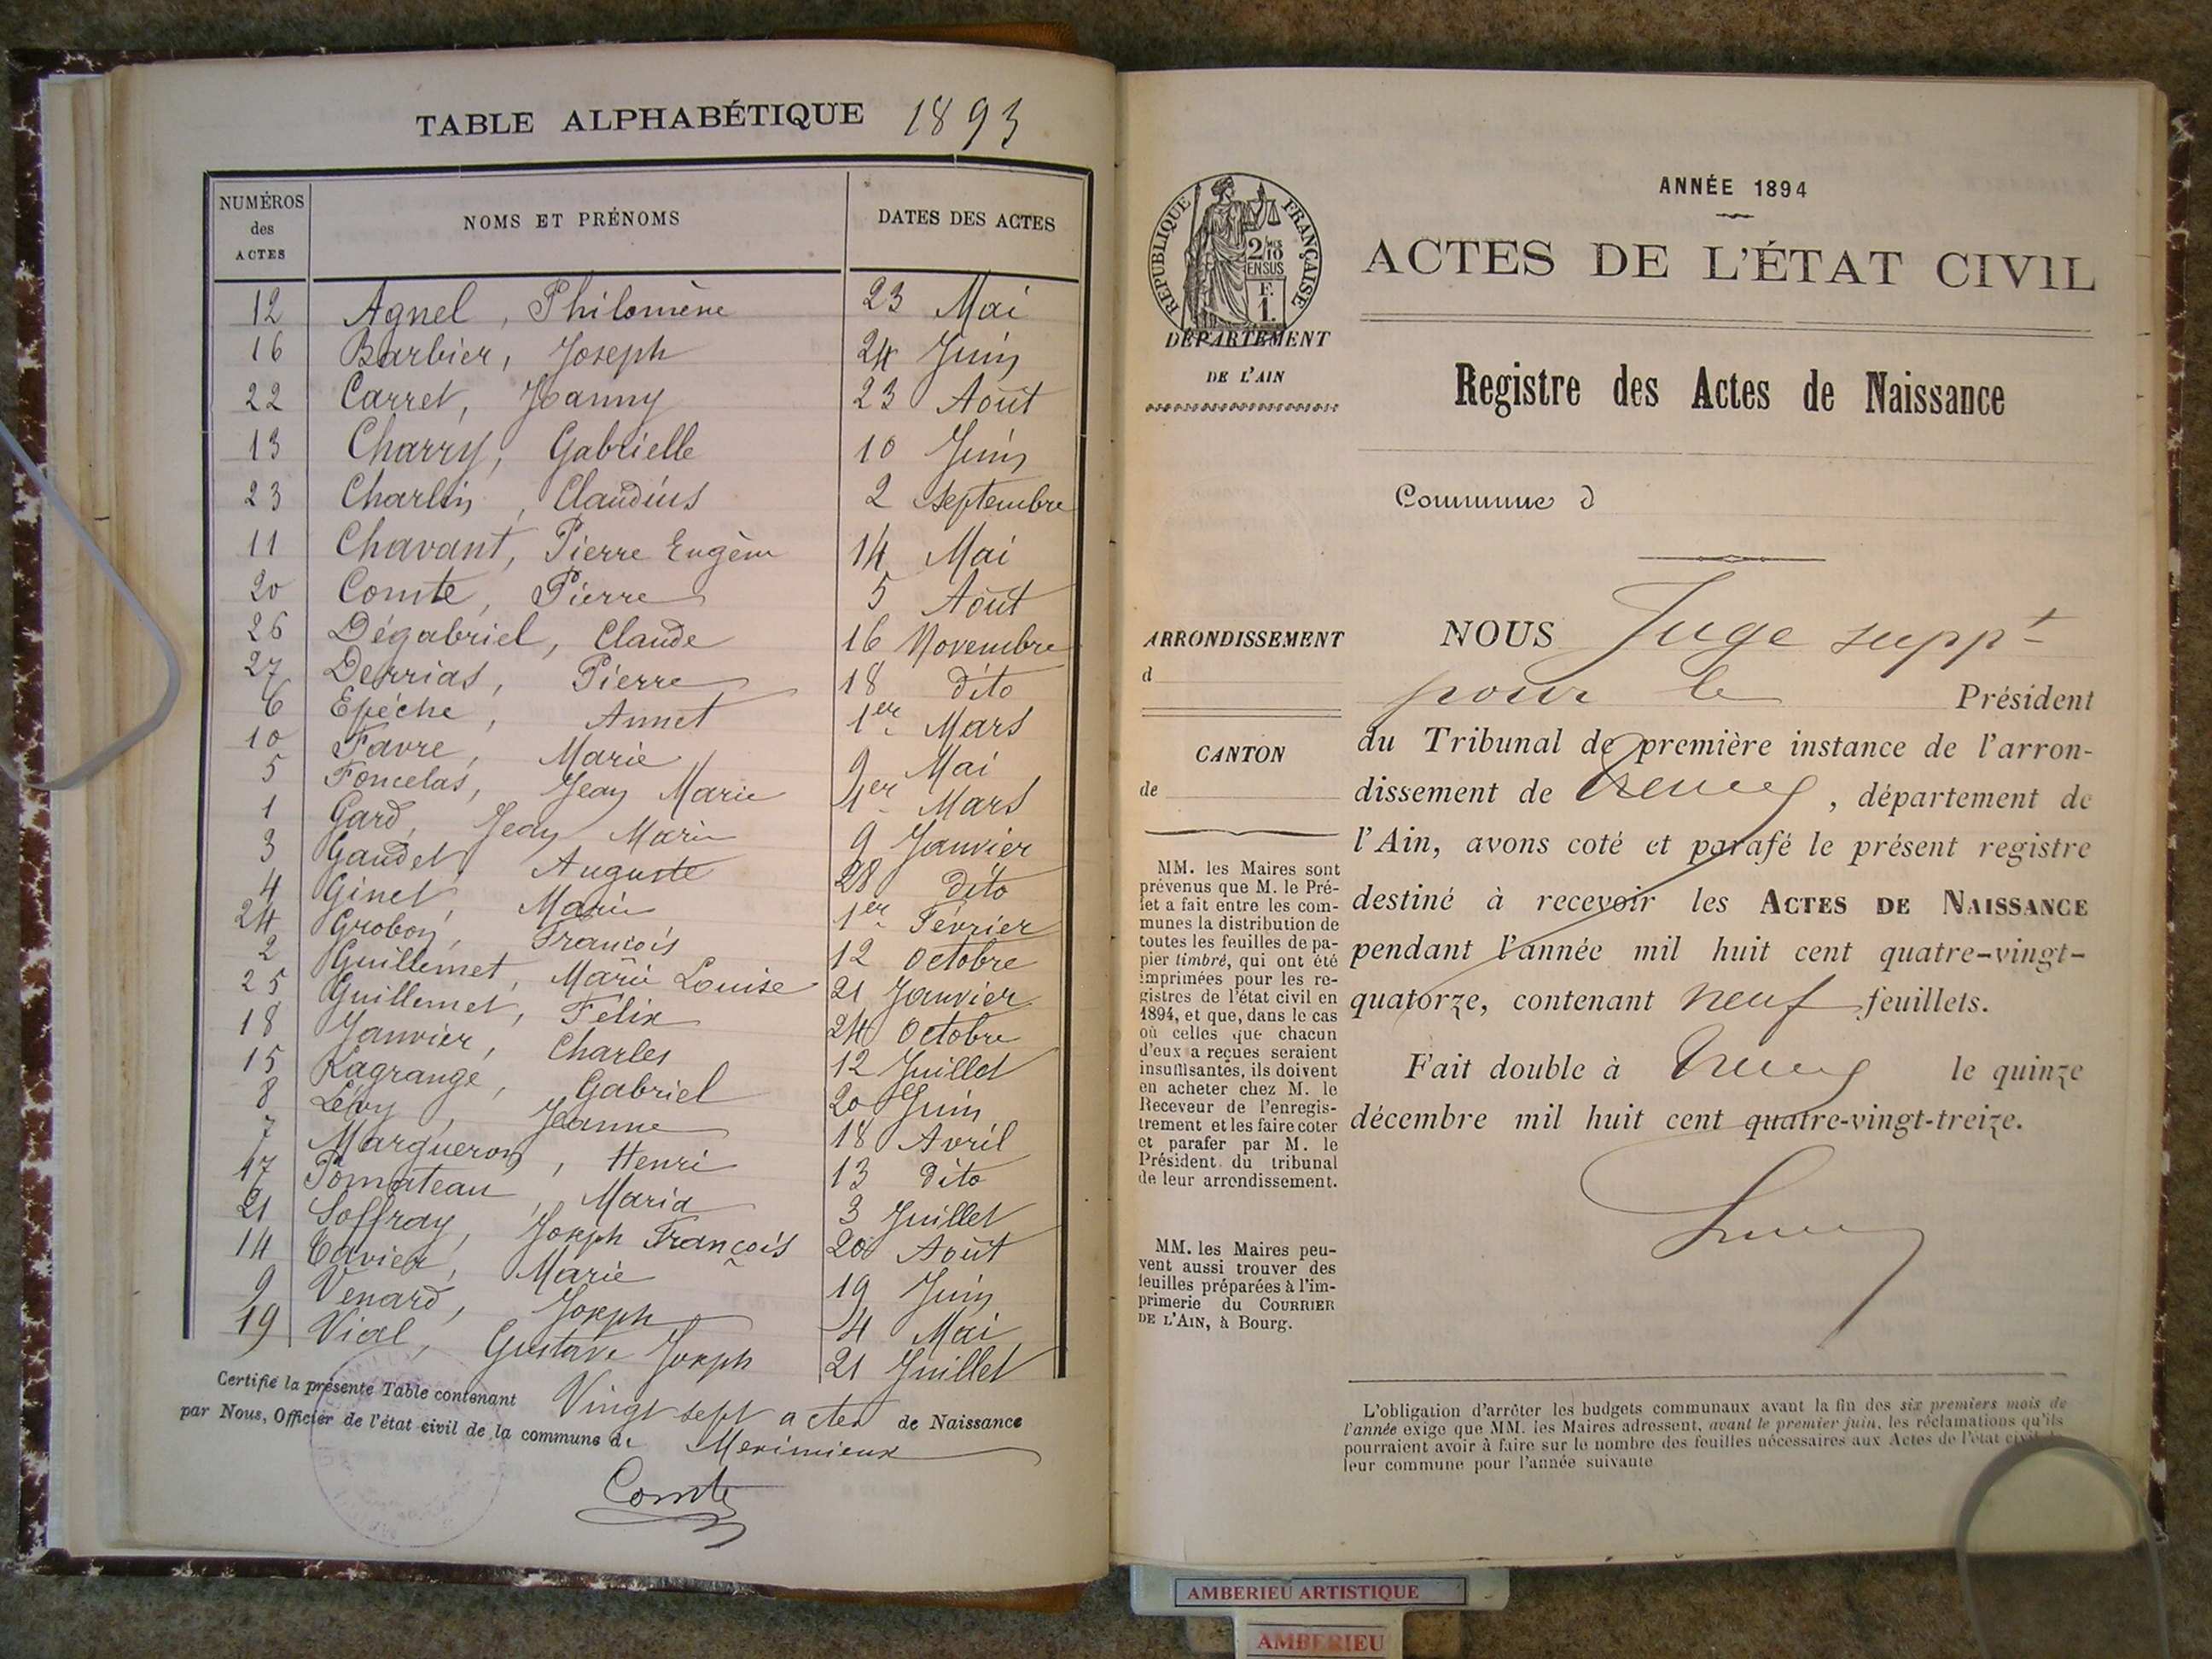 TABLE ALPHABÉTIQUE 1893
NUMÉROS des ACTES NOMS ET PRÉNOMS DATES DES ACTES
12 Agnel, Philomène 23 Mai
16 Barbier, Joseph 24 Juin
22 Carret, Joanny 23 Août
13 Charry, Gabrielle 10 Juin
23 Charlin, Claudius 2 Septembre
11 Chavant, Pierre Eugène 14 Mai
20 Comte, Pierre 5 Août
26 Dégabriel, Claude 16 Novembre
27 Derrias, Pierre 18 dito
6 Epéche, Annet 1er Mars
10 Favre, Marie 9 Mai
5 Foncelas, Jean Marie 1er Mars
1 Gard, Jean Marie 9 Janvier
3 Gaudet Auguste 28 dito
4 Ginet, Marie 1er Février
24 Grobon, François 12 Octobre
2 Guillemet, Marie Louise 21 Janvier
25 Guillemet, Félix 24 Octobre
18 Janvier, Charles 12 Juillet
15 Lagrange, Gabriel 20 Juin
8 Lévy, Jeanne 18 Avril
7 Margueron, Henri 13 dito
17 Pomateau, Maria 3 Juillet
21 Soffray, Joseph François 20 Août
14 Tavier, Marie 19 Juin
9 Venard, Joseph 4 Mai
19 Vial, Gustave Joseph 21 Juillet
Certifié la présente Table contenant Vingt sept actes de Naissance
par Nous, Officier de l'état civil de la commune de Meximieux
Comte
ANNÉE 1894
ACTES DE L'ÉTAT CIVIL
RÉPUBLIQUE FRANÇAISE
2/10 EN SUS
F. 1.
DÉPARTEMENT
DE L'AIN
Registre des Actes de Naissance
Commune d
ARRONDISSEMENT
d
CANTON
de
MM. les Maires sont
prévenus que M. le Pré-
fet a fait entre les com-
munes la distribution de
toutes les feuilles de pa-
pier timbré, qui ont été
imprimées pour les re-
gistres de l'état civil en
1894, et que, dans le cas
où celles que chacun
d'eux a reçues seraient
insuffisantes, ils doivent
en acheter chez M. le
Receveur de l'enregis-
trement et les faire coter
et parafer par M. le
Président du tribunal
de leur arrondissement.
MM. les Maires peu-
vent aussi trouver des
feuilles préparées à l'im-
primerie du COURRIER
DE L'AIN, à Bourg.
NOUS Juge suppt
pour le Président
du Tribunal de première instance de l'arron-
dissement de Trévoux, département de
l'Ain, avons coté et parafé le présent registre
destiné à recevoir les ACTES DE NAISSANCE
pendant l'année mil huit cent quatre-vingt-
quatorze, contenant neuf feuillets.
Fait double à Trévoux le quinze
décembre mil huit cent quatre-vingt-treize.
L'obligation d'arrêter les budgets communaux avant la fin des six premiers mois de
l'année exige que MM. les Maires adressent, avant le premier juin, les réclamations qu'ils
pourraient avoir à faire sur le nombre des feuilles nécessaires aux Actes de l'état civil de
leur commune pour l'année suivante
AMBERIEU ARTISTIQUE
AMBERIEU